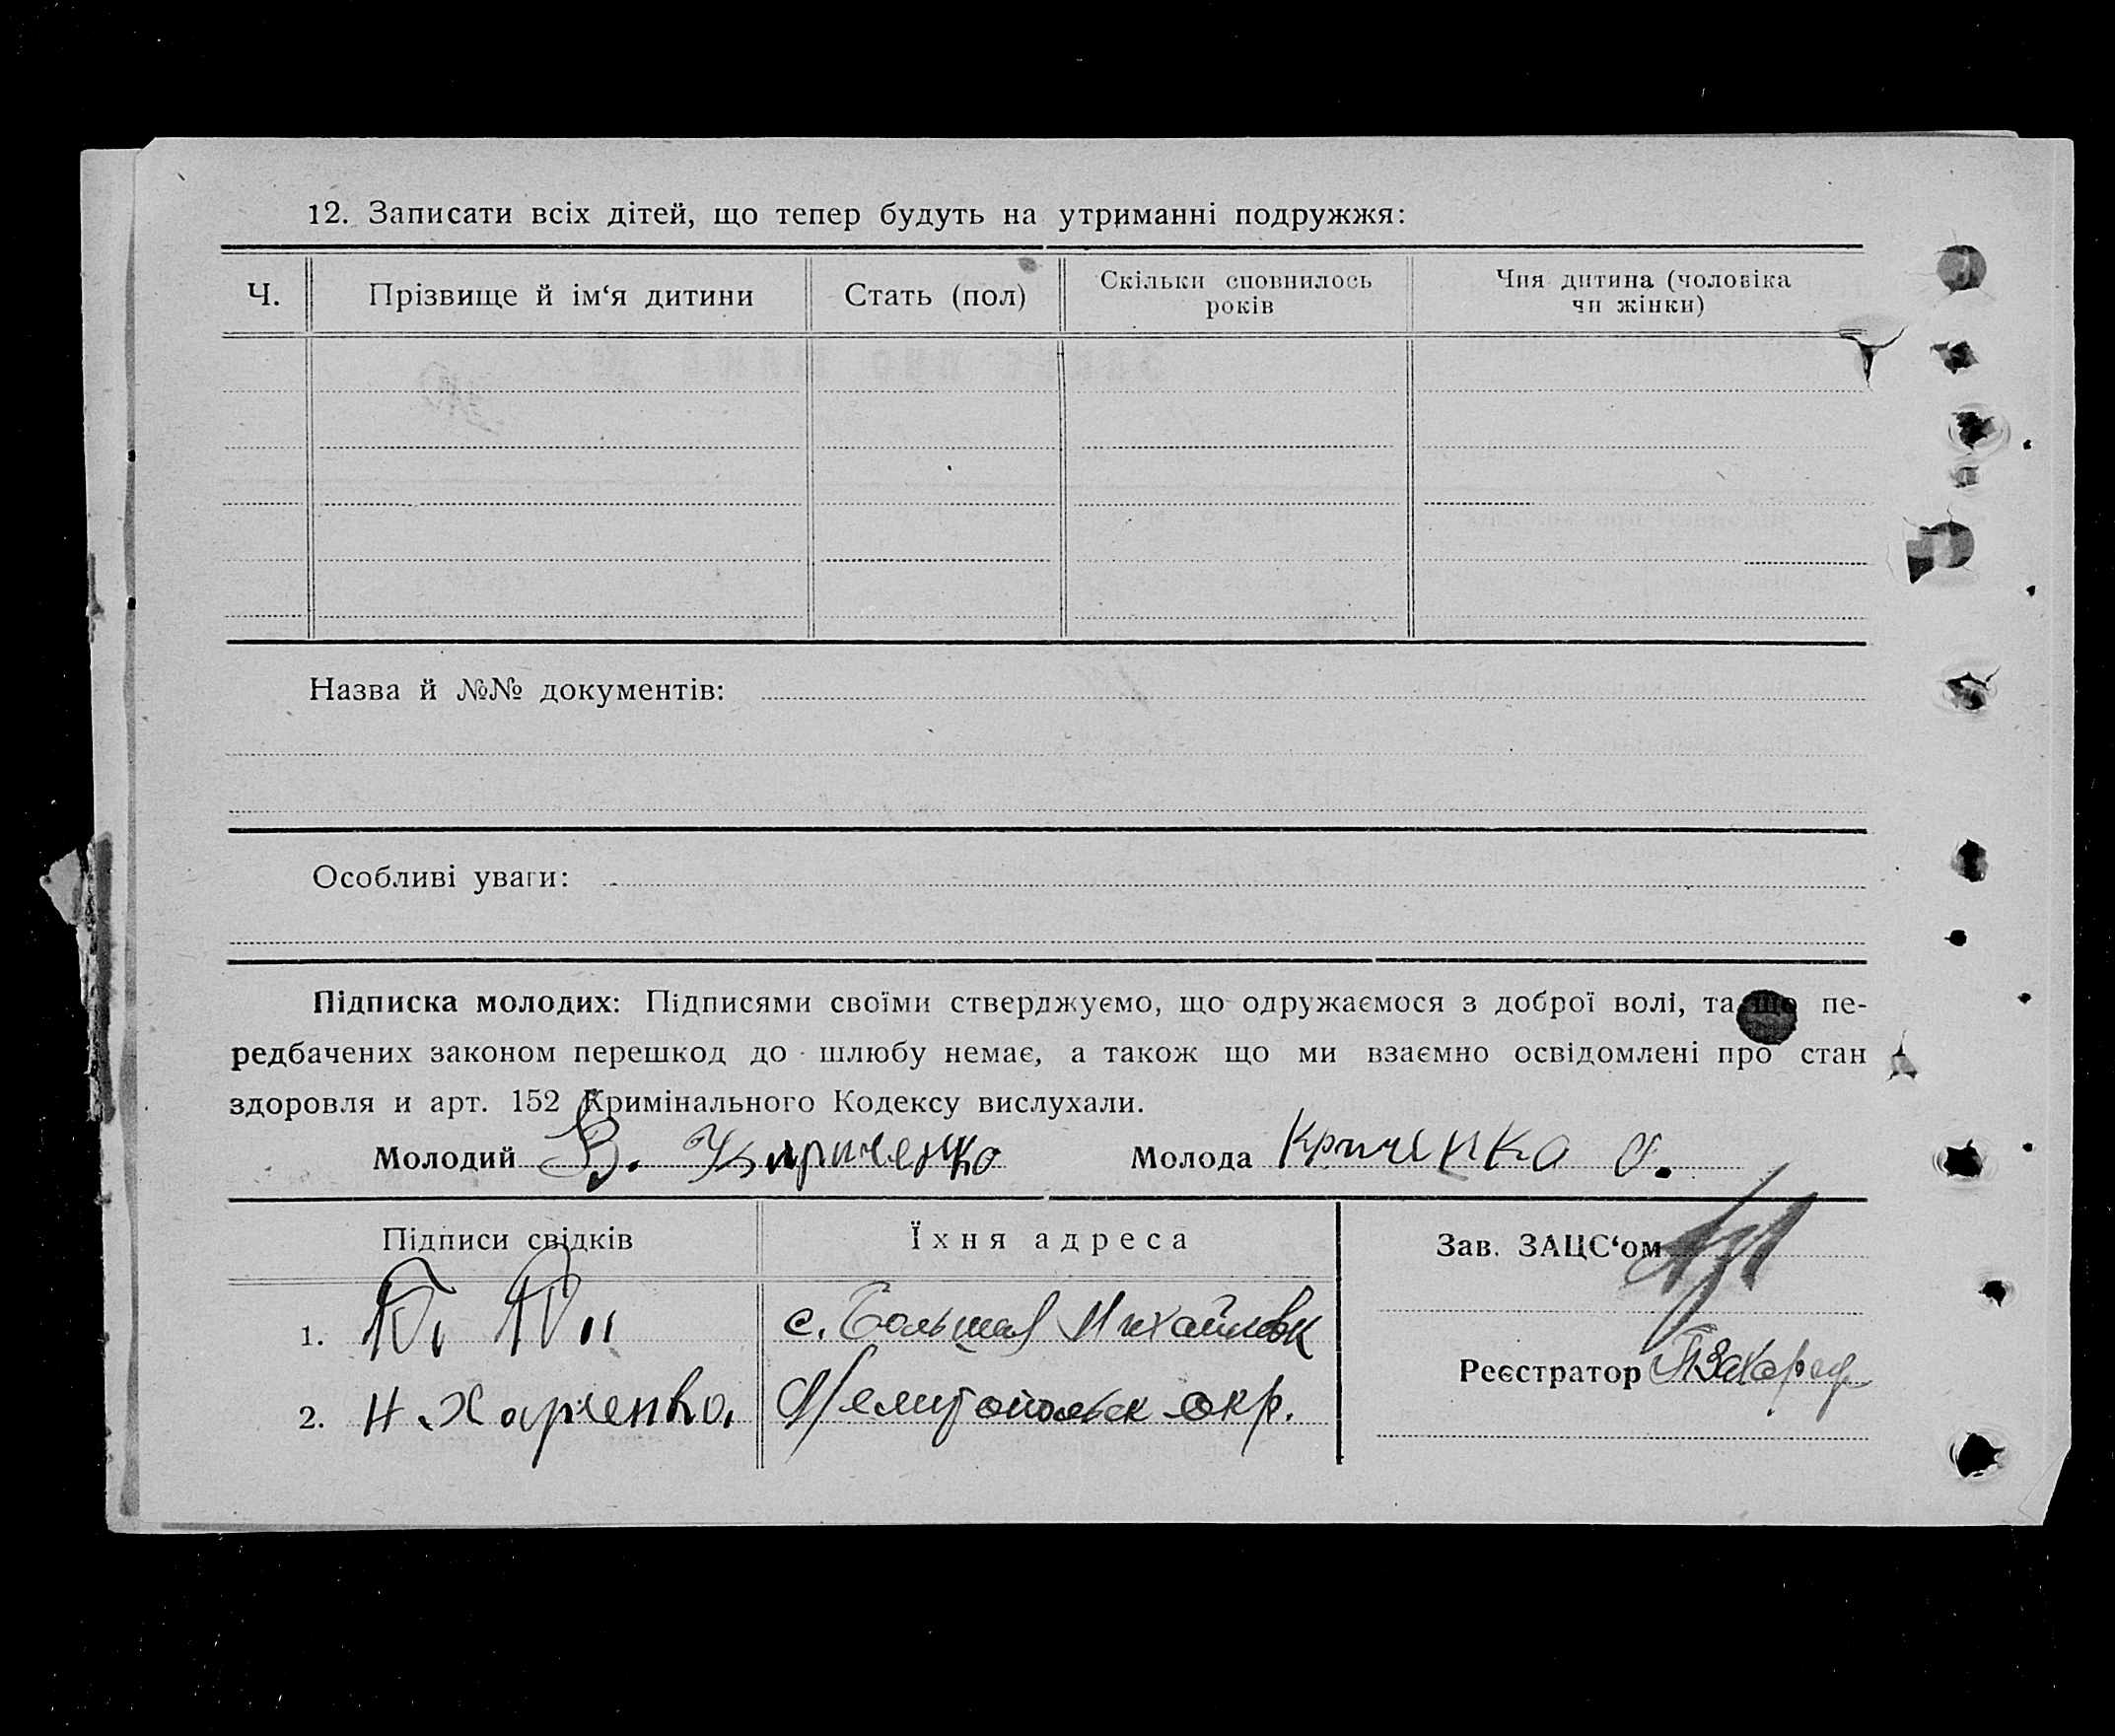 12. Записати всіх дітей, що тепер будуть на утриманні подружжя:
Ч. Прізвище й ім‘я дитини Стать (пол) Скільки сповнилось років Чия дитина (чоловіка чи жінки)
Назва й №№ документів:
Особливі уваги:
Підписка молодих: Підписями своїми стверджуємо, що одружаємося з доброї волі, та що пе-
редбачених законом перешкод до шлюбу немає, а також що ми взаємно освідомлені про стан
здоровля и арт. 152 Кримінального Кодексу вислухали.
Молодий В. Кириченко Молода
Підписи свідків Їхня адреса Зав. ЗАЦС‘ом
1. с. Большая Михайловк
Реєстратор
2. Н. Харченко Мелитопольск окр.